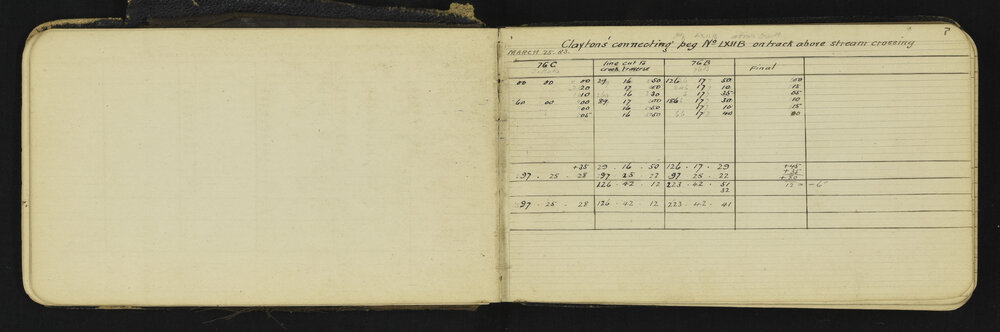 7
Clayton's connecting peg No LXIIB on track above stream crossing
MARCH 25. 83.
76C line cut to creek traverse 76B Final
00 00 00 29 16 50 126 17 50 00
20 17 00 17 10 15
10 16 30 17 35 05
60 00 00 89 17 00 186 17 30 10
00 16 00 17 10 15
05 16 50 17 40 00
+35 29 16 50 126 . 17 . 29 +45
+35
97 . 25 . 28 97 25 22 97 . 25 . 22 +80
126 . 42 . 12 223 . 42 . 51 12 = -6
32
97 . 25 . 28 126 . 42 . 12 223 . 42 . 41